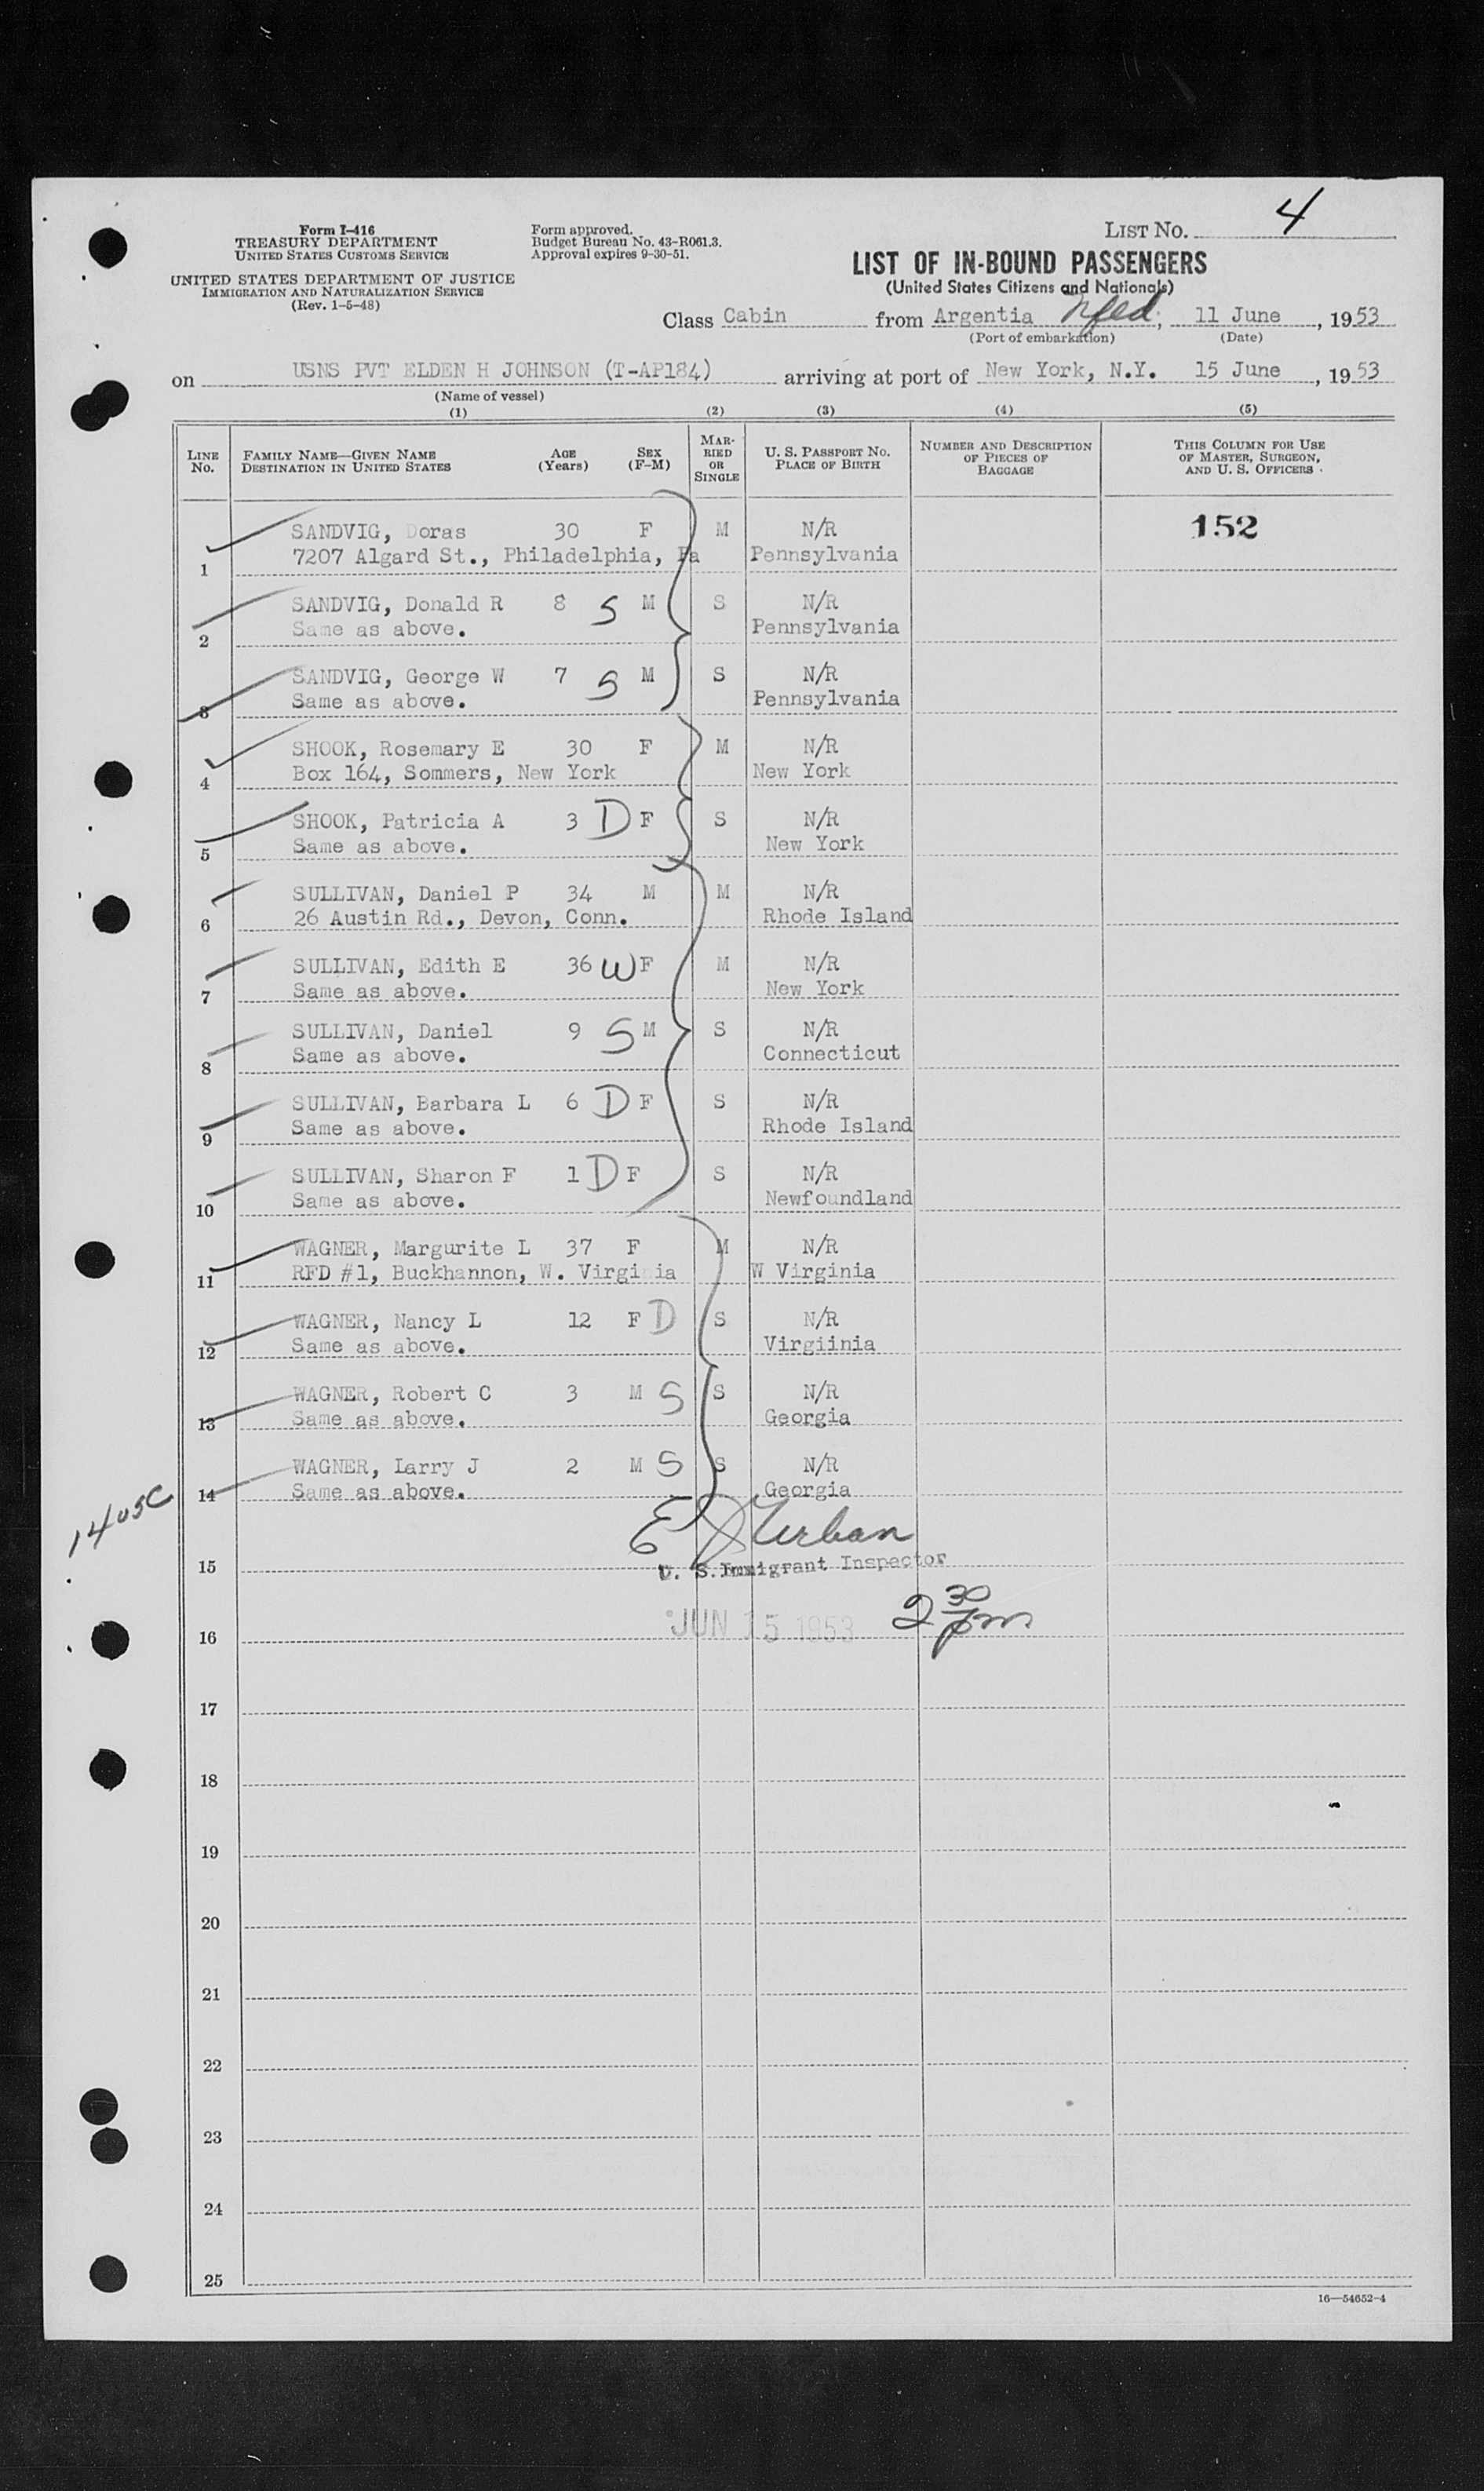 Form I-416
TREASURY DEPARTMENT
UNITED STATES CUSTOMS SERVICE
UNITED STATES DEPARTMENT OF JUSTICE
IMMIGRATION AND NATURALIZATION SERVICE
(Rev. 1-5-48)
Form approved.
Budget Bureau No. 43-R061.3.
Approval expires 9-30-51.
LIST NO. 4
LIST OF IN-BOUND PASSENGERS
(United States Citizens and Nationals)
Class Cabin from Argentia Nfld, 11 June, 1953
(Port of embarkation) (Date)
on USNS PVT ELDEN H JOHNSON (T-AP184) arriving at port of New York, N.Y. 15 June, 1953
(Name of vessel)
(1) (2) (3) (4) (5)
LINE No. FAMILY NAME—GIVEN NAME DESTINATION IN UNITED STATES AGE (Years) SEX (F-M) MARRIED OR SINGLE U. S. PASSPORT NO. PLACE OF BIRTH NUMBER AND DESCRIPTION OF PIECES OF BAGGAGE THIS COLUMN FOR USE OF MASTER, SURGEON, AND U. S. OFFICERS
SANDVIG, Doras 30 F M N/R 152
1 7207 Algard St., Philadelphia, Pa Pennsylvania
SANDVIG, Donald R 8 S M S N/R
2 Same as above. Pennsylvania
SANDVIG, George W 7 S M S N/R
3 Same as above. Pennsylvania
SHOOK, Rosemary E 30 F M N/R
4 Box 164, Sommers, New York New York
SHOOK, Patricia A 3 D F S N/R
5 Same as above. New York
SULLIVAN, Daniel P 34 M M N/R
6 26 Austin Rd., Devon, Conn. Rhode Island
SULLIVAN, Edith E 36 W F M N/R
7 Same as above. New York
SULLIVAN, Daniel 9 S M S N/R
8 Same as above. Connecticut
SULLIVAN, Barbara L 6 D F S N/R
9 Same as above. Rhode Island
SULLIVAN, Sharon F 1 D F S N/R
10 Same as above. Newfoundland
WAGNER, Margurite L 37 F M N/R
11 RFD #1, Buckhannon, W. Virginia W Virginia
WAGNER, Nancy L 12 F D S N/R
12 Same as above. Virgiinia
WAGNER, Robert C 3 M S S N/R
13 Same as above. Georgia
WAGNER, Larry J 2 M S S N/R
14 Same as above. Georgia
14 USC
E J Urban
15 U. S. Immigrant Inspector
16 JUN 15 1953 2 30 pm
17
18
19
20
21
22
23
24
25
16—54652-4